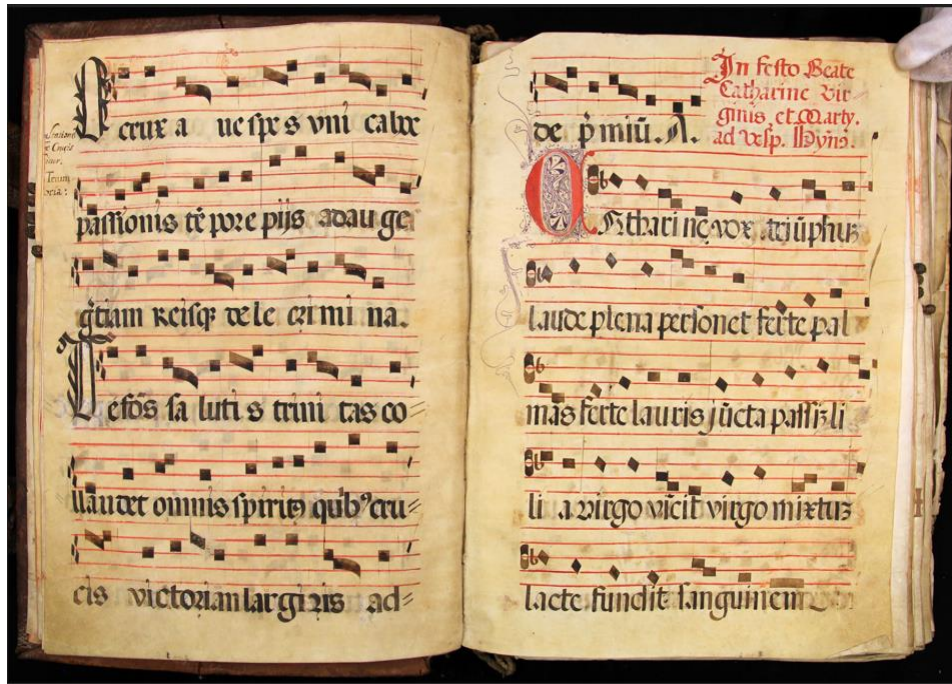 O crux a ue spe s vni ca hoc
passionis tẽ por e pijs adau ge
gr̃tiam Reisq3 de le cri mi na.
Te fõs sa luti s trini tas co=
llaudet omnis spiritꝰ quibꝰ cru=
cis victoriam largiris ad=
de p̃ miũ. A.
In festo Beate
Catharine Vir=
ginis, et Marty.
ad vesp. Hyns.
CAthari nę vox triũphus
laude plena personet ferte pal
mas ferte lauris jũcta passis li
li a virgo vicit virgo mixtus
lacte fundit sanguinem